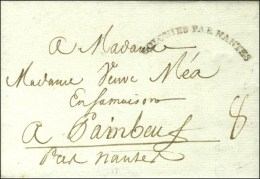 COLONIES PAR NANTES
A Madame
Madame Veuve Méa
En sa maison
A Paimbeuf 8
Par nantes